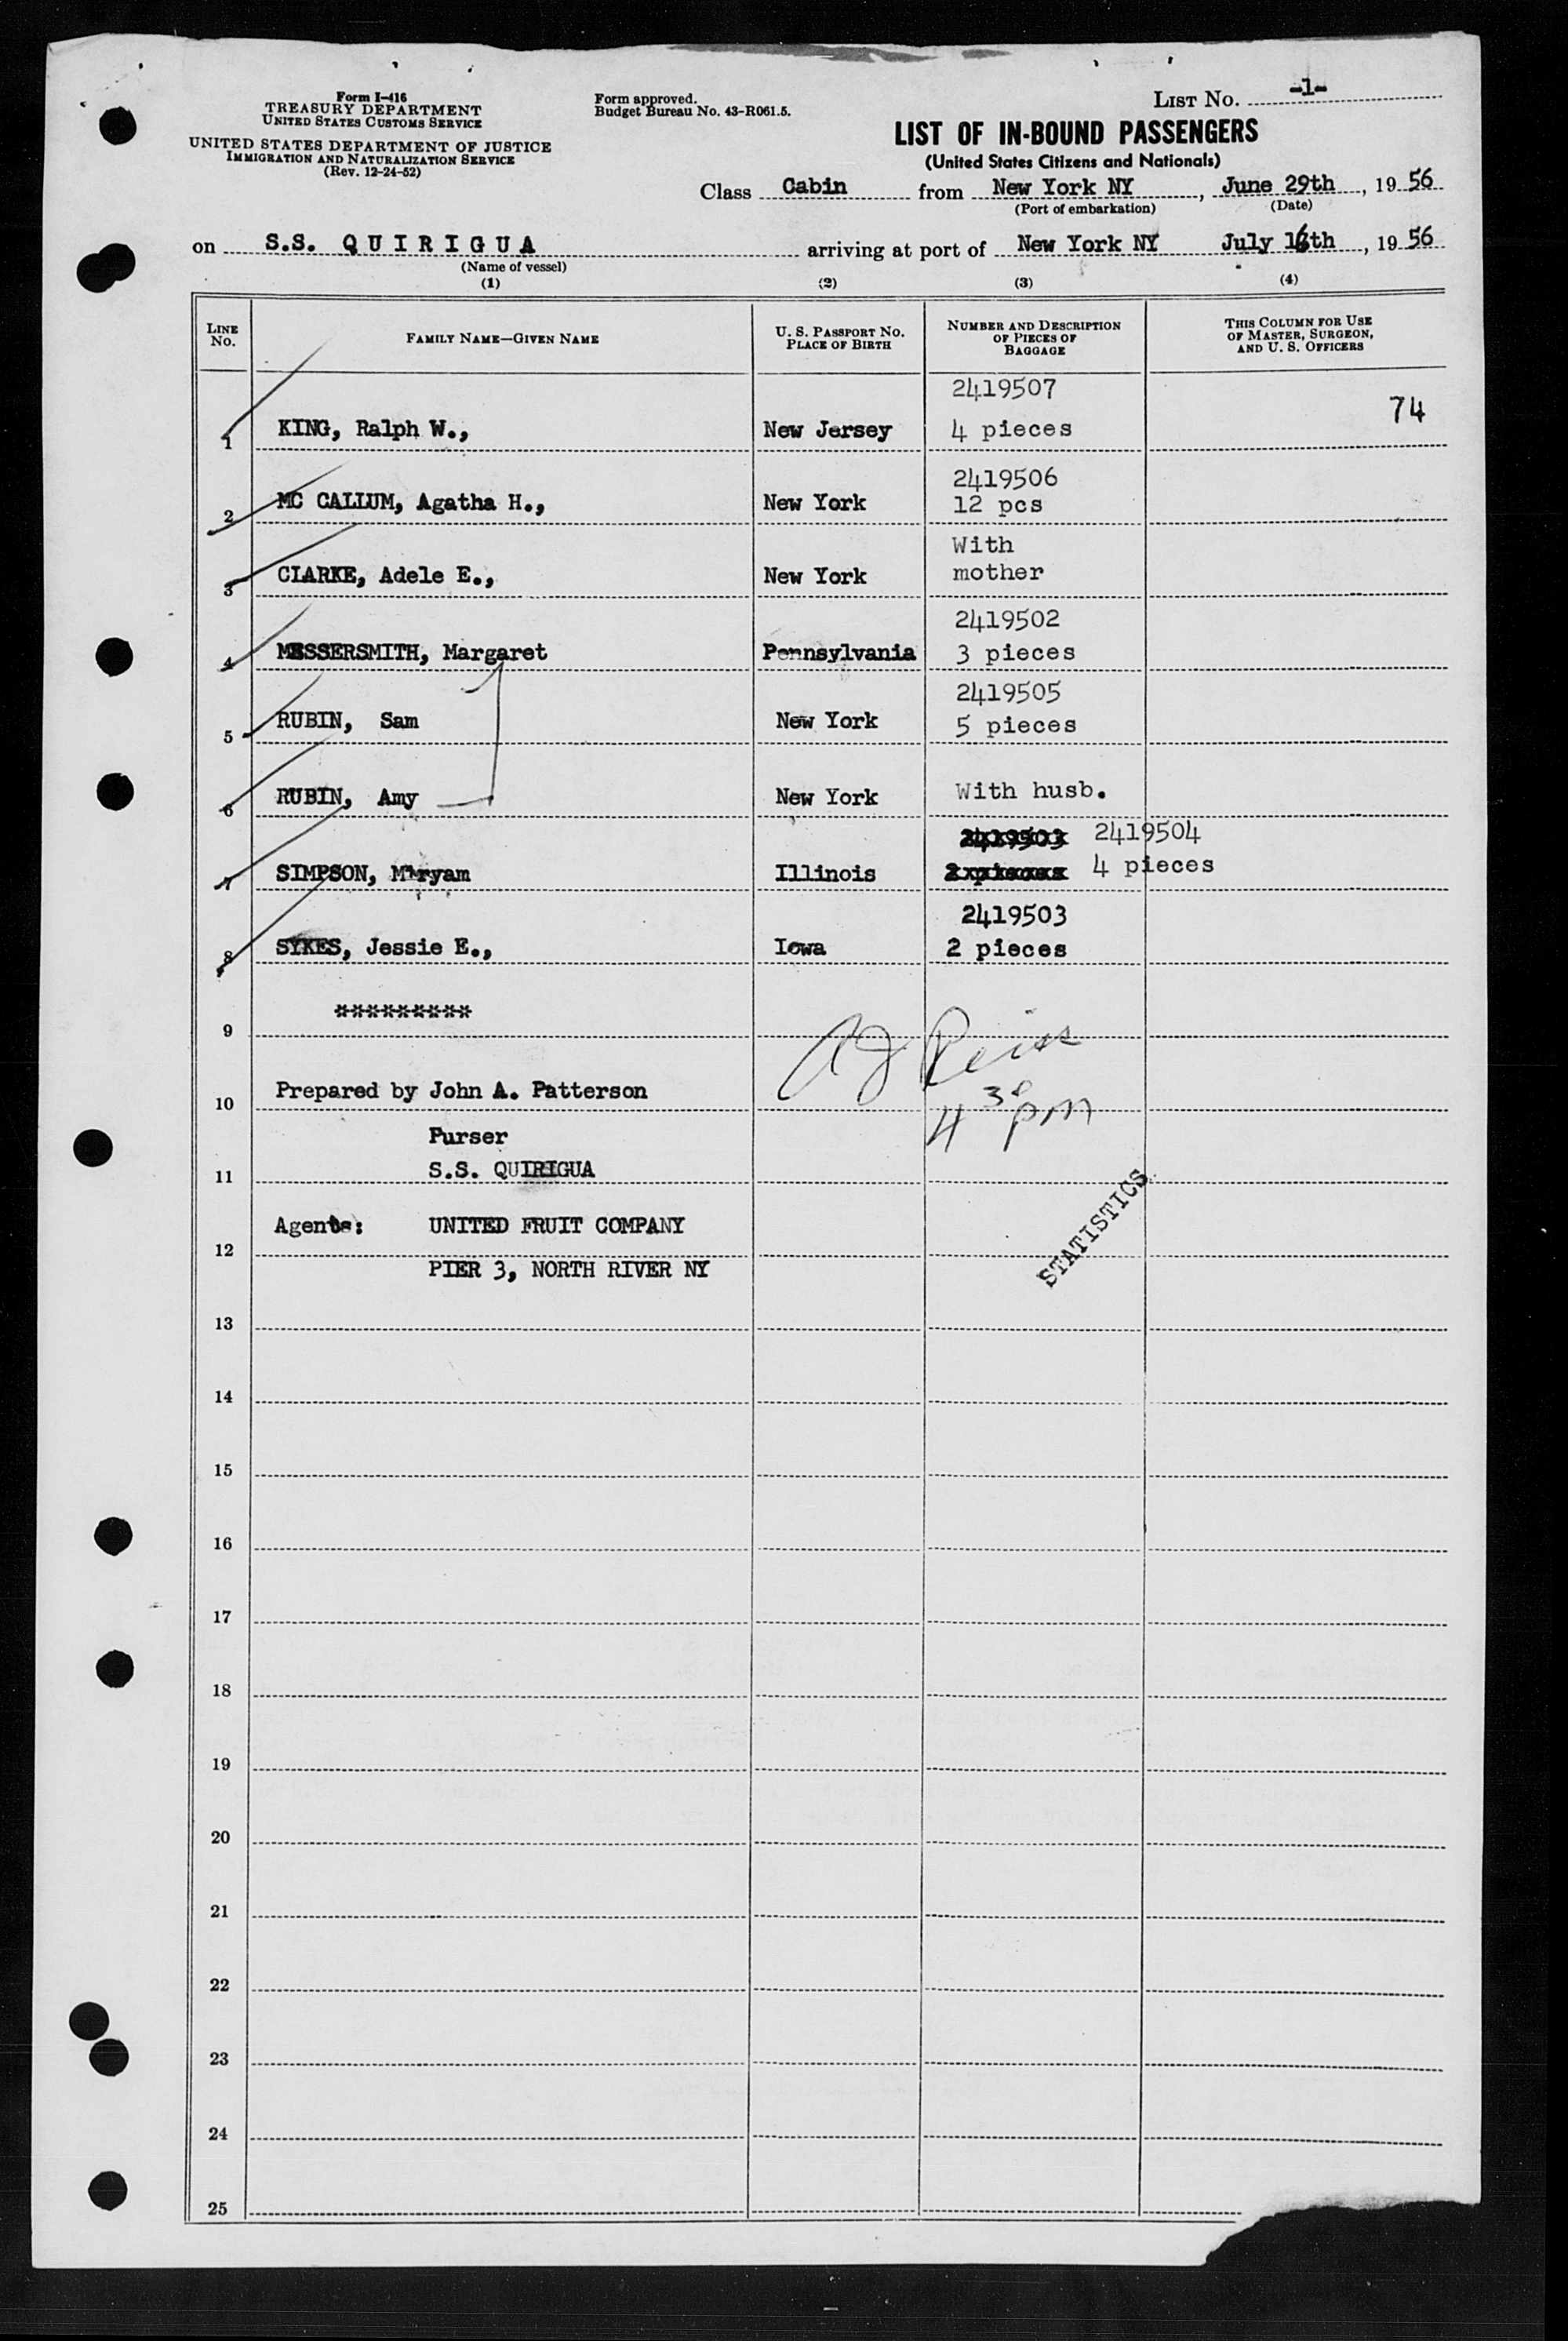 Form I-416
TREASURY DEPARTMENT
UNITED STATES CUSTOMS SERVICE
UNITED STATES DEPARTMENT OF JUSTICE
IMMIGRATION AND NATURALIZATION SERVICE
(Rev. 12-24-52)
Form approved.
Budget Bureau No. 43-R061.5.
LIST NO. -1-
LIST OF IN-BOUND PASSENGERS
(United States Citizens and Nationals)
Class Cabin from New York NY, June 29th, 1956
(Port of embarkation) (Date)
on S.S. QUIRIGUA arriving at port of New York NY July 16th, 1956
(Name of vessel)
(1) (2) (3) (4)
LINE NO. FAMILY NAME—GIVEN NAME U. S. PASSPORT NO. PLACE OF BIRTH NUMBER AND DESCRIPTION OF PIECES OF BAGGAGE THIS COLUMN FOR USE OF MASTER, SURGEON, AND U. S. OFFICERS
2419507
74
1 KING, Ralph W., New Jersey 4 pieces
2419506
2 MC CALLUM, Agatha H., New York 12 pcs
With
3 CLARKE, Adele E., New York mother
2419502
4 MESSERSMITH, Margaret Pennsylvania 3 pieces
2419505
5 RUBIN, Sam New York 5 pieces
6 RUBIN, Amy New York With husb.
2419503 2419504
7 SIMPSON, Maryam Illinois 2 pieces 4 pieces
2419503
8 SYKES, Jessie E., Iowa 2 pieces
*********
9
AJ Reiss
10 Prepared by John A. Patterson
4 30 pm
Purser
11 S.S. QUIRIGUA
STATISTICS
Agents: UNITED FRUIT COMPANY
12
PIER 3, NORTH RIVER NY
13
14
15
16
17
18
19
20
21
22
23
24
25